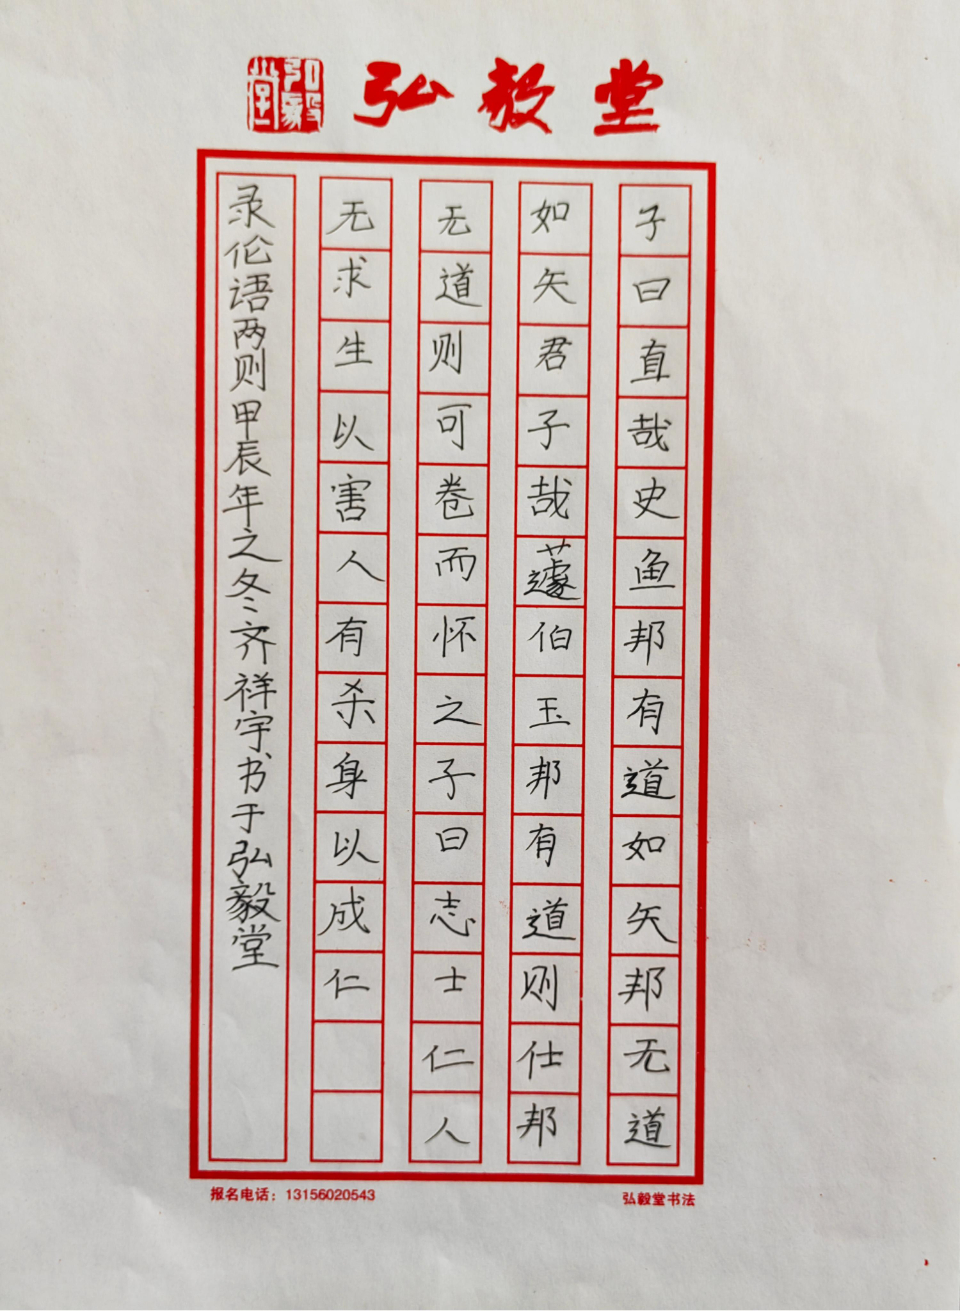 弘毅堂
弘毅堂
子曰直哉史鱼邦有道如矢邦无道
如矢君子哉蘧伯玉邦有道则仕邦
无道则可卷而怀之子曰志士仁人
无求生以害人有杀身以成仁
录伦语两则甲辰年之冬齐祥宇书于弘毅堂
报名电话：13156020543
弘毅堂书法